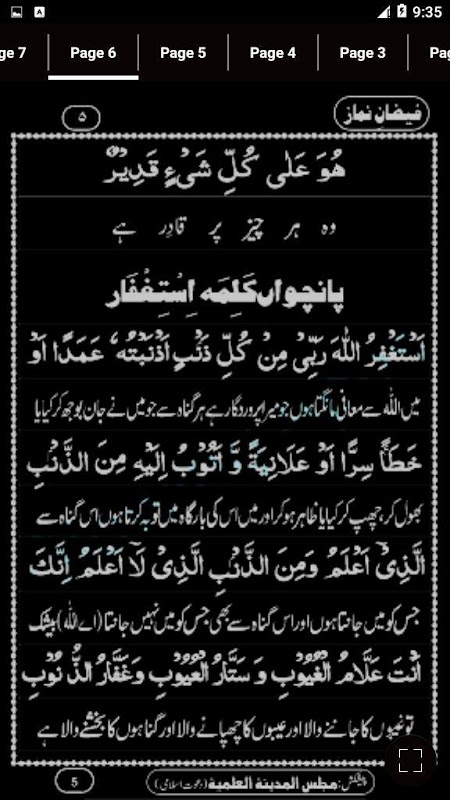 9:35
ge 7 Page 6 Page 5 Page 4 Page 3 Pag
فیضانِ نماز ۵
هُوَ عَلٰى كُلِّ شَىْءٍ قَدِيْرٌ
وہ ہر چیز پر قادِر ہے
پانچواں کَلِمَہ اِسْتِغْفَار
اَسْتَغْفِرُ اللّٰهَ رَبِّىْ مِنْ كُلِّ ذَنْۢبٍ اَذْنَبْتُهٗ عَمَدًا اَوْ
میں اللہ سے معافی مانگتا ہوں جو میرا پروردگار ہے ہر گناہ سے جو میں نے جان بوجھ کر کیا یا
خَطَأً سِرًّا اَوْ عَلَانِيَةً وَّ اَتُوْبُ اِلَيْهِ مِنَ الذَّنْۢبِ
بھول کر، چھپ کر کیا یا ظاہر ہو کر اور میں اس کی بارگاہ میں توبہ کرتا ہوں اس گناہ سے
الَّذِىْٓ اَعْلَمُ وَمِنَ الذَّنْۢبِ الَّذِىْ لَآ اَعْلَمُ اِنَّكَ
جس کو میں جانتا ہوں اور اس گناہ سے بھی جس کو میں نہیں جانتا (اے اللہ) بیشک
اَنْتَ عَلَّامُ الْغُيُوْبِ وَ سَتَّارُ الْعُيُوْبِ وَغَفَّارُ الذُّنُوْبِ
تو غیبوں کا جاننے والا اور عیبوں کا چھپانے والا اور گناہوں کا بخشنے والا ہے
پیشکش: مجلس المدینۃ العلمیۃ (دعوتِ اسلامی) 5